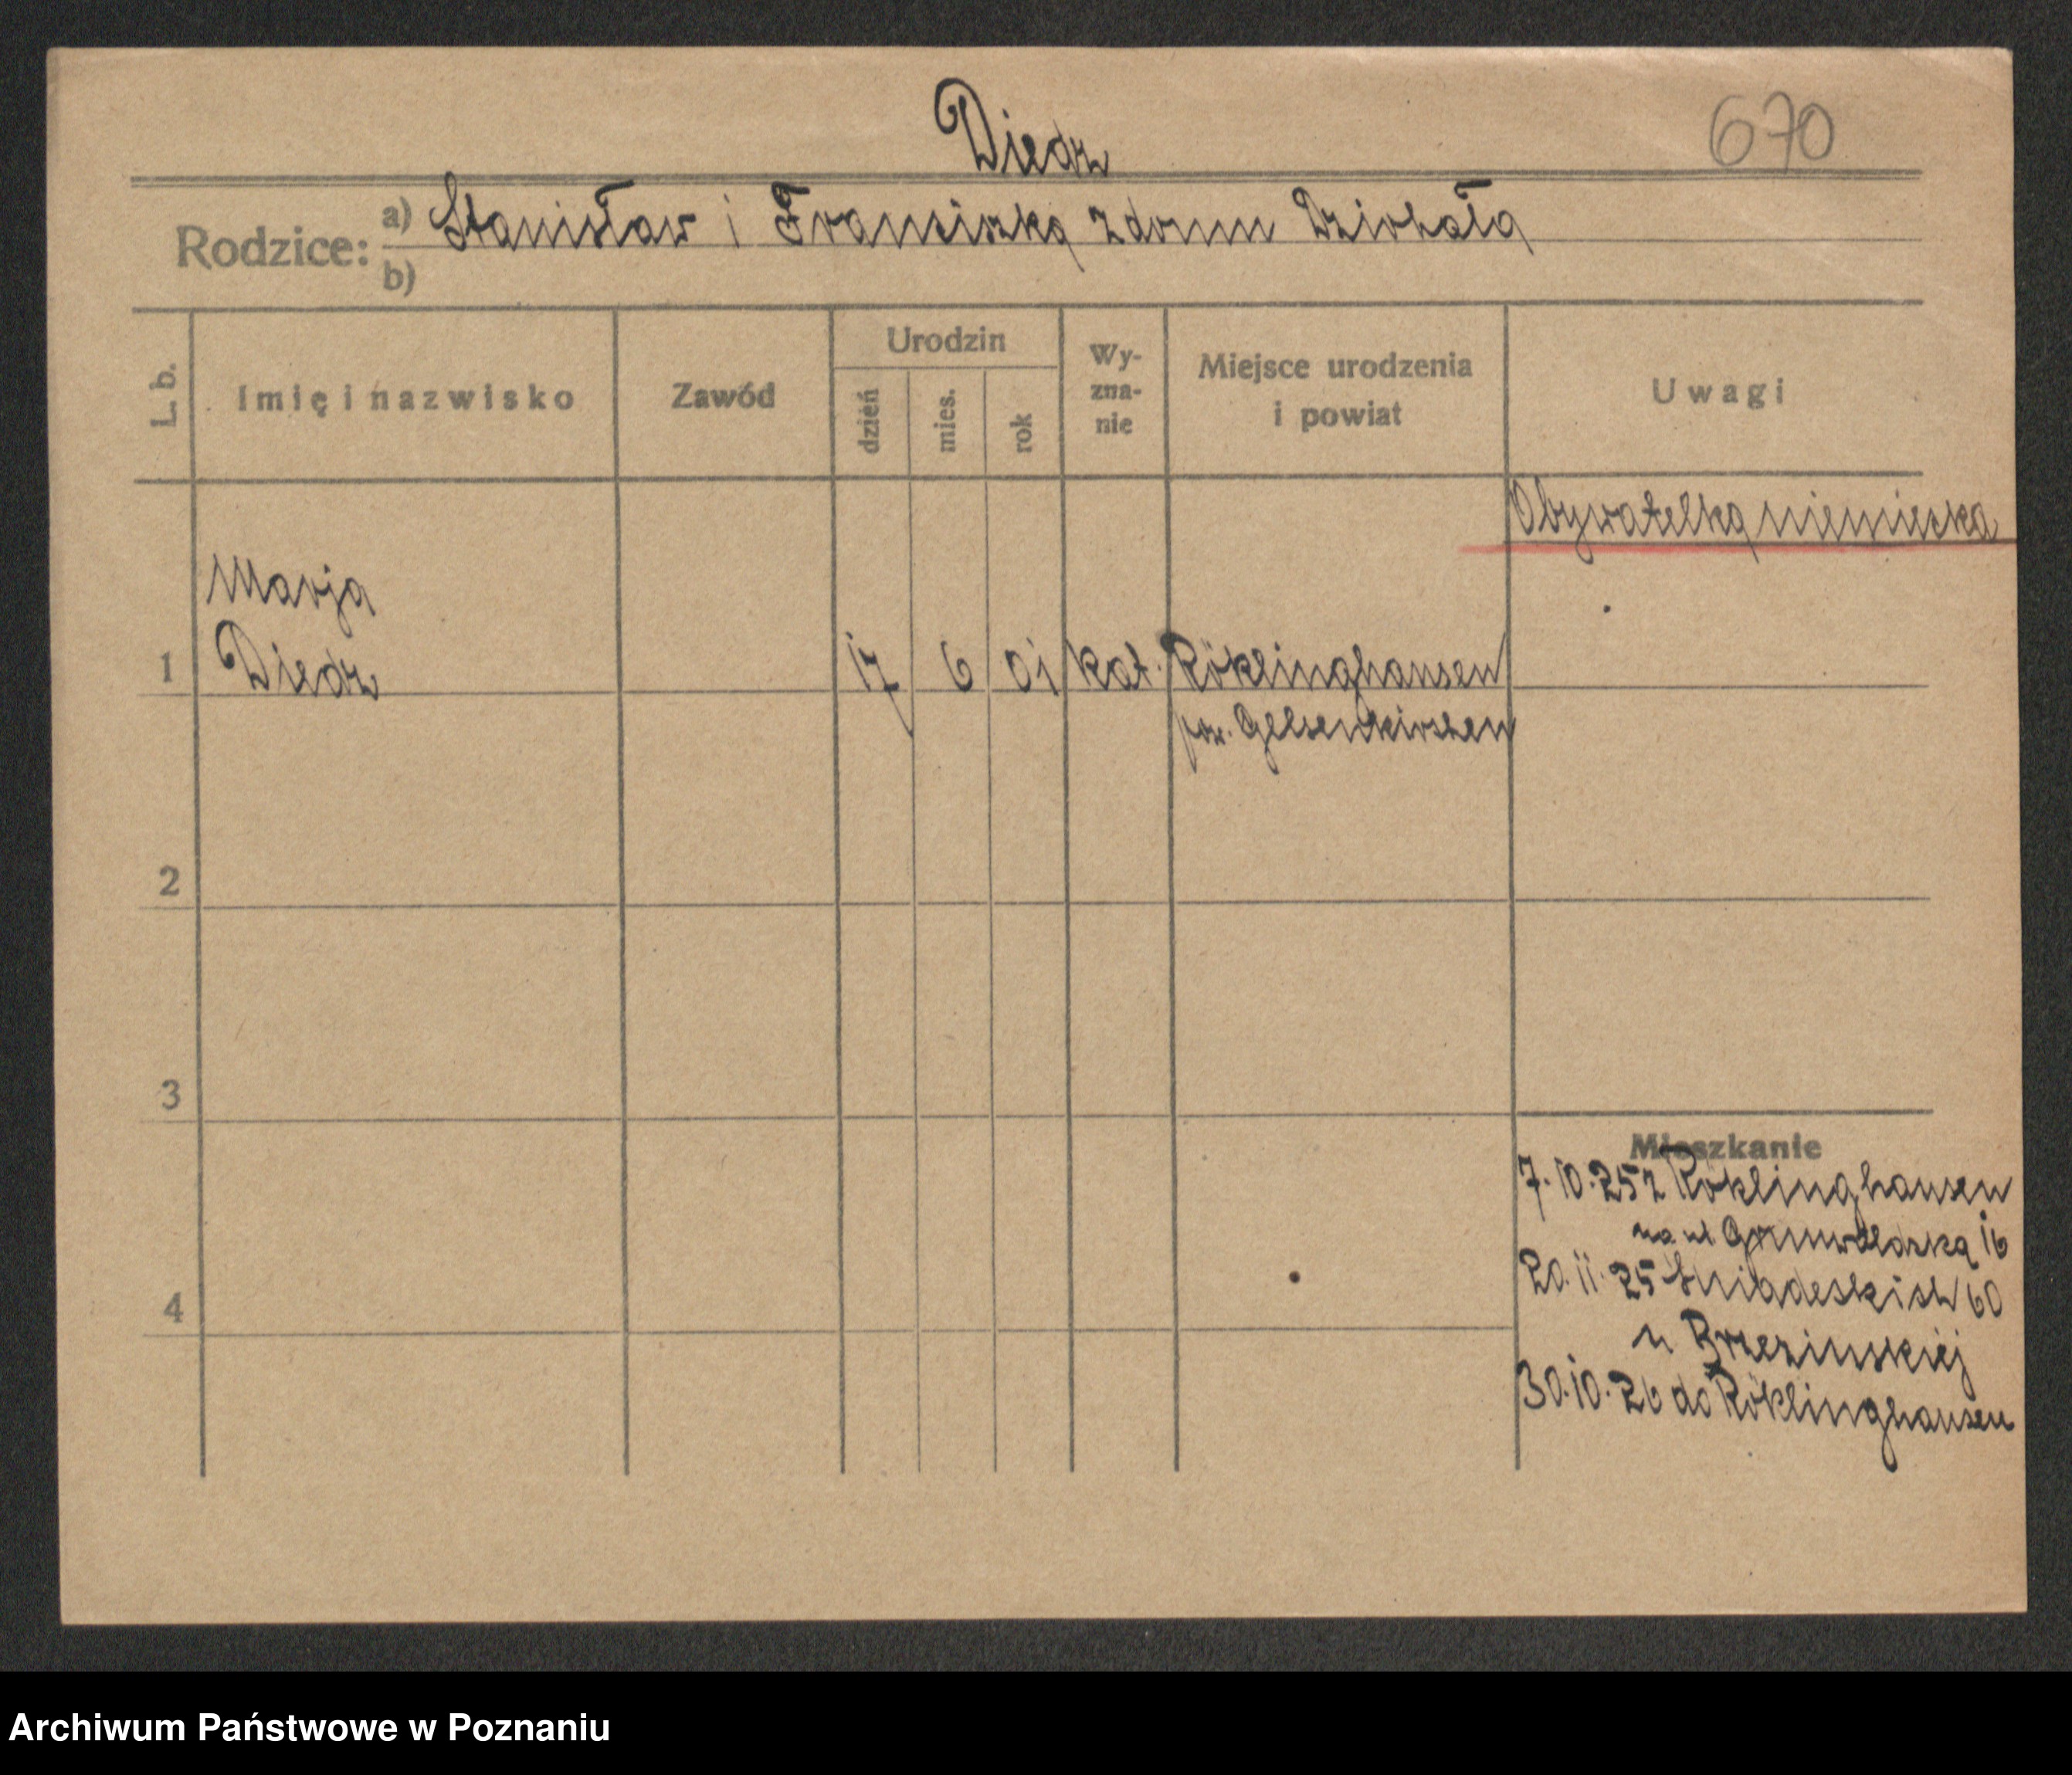 Diedz
670
Rodzice: a) Stanisław i Franciszka z domu
b)
L. b.
Imię i nazwisko
Zawód
Urodzin
dzień
mies.
rok
Wy-
zna-
nie
Miejsce urodzenia
i powiat
Uwagi
Obywatelka niemiecka
Marja
1 Diedz 17 6 01 kat. Röklinghausen
pow. Gelsenkirchen
2
3
4
Mieszkanie
7.10.25 z Röklinghausen
na ul Grunwaldzką 16
20.11.25 Śniadeckich 60
u Brzezinskiej
30.10.26 do Röklinghausen
Archiwum Państwowe w Poznaniu